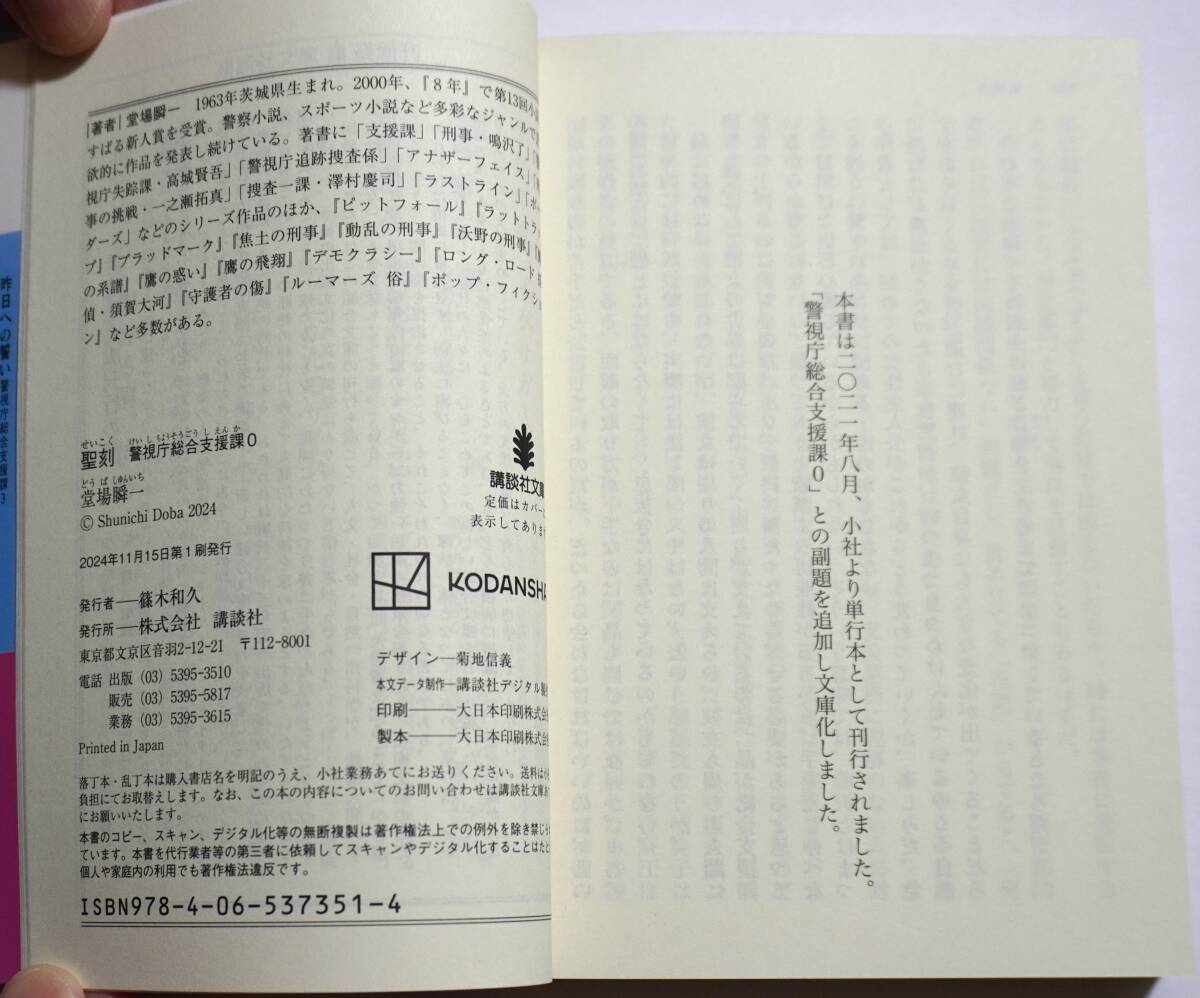 本書は二〇二一年八月、小社より単行本として刊行されました。
「警視庁総合支援課0」との副題を追加し文庫化しました。
|著者| 堂場瞬一 1963年茨城県生まれ。2000年、『8年』で第13回小
すばる新人賞を受賞。警察小説、スポーツ小説など多彩なジャンルで
欲的に作品を発表し続けている。著書に「支援課」「刑事・鳴沢了」
視庁失踪課・高城賢吾」「警視庁追跡捜査係」「アナザーフェイス」
事の挑戦・一之瀬拓真」「捜査一課・澤村慶司」「ラストライン」「ボー
ダーズ」などのシリーズ作品のほか、『ピットフォール』『ラットトラッ
プ』『ブラッドマーク』『焦土の刑事』『動乱の刑事』『沃野の刑事』
の系譜』『鷹の惑い』『鷹の飛翔』『デモクラシー』『ロング・ロード
偵・須賀大河』『守護者の傷』『ルーマーズ 俗』『ポップ・フィクショ
ン』など多数がある。
せいこく けいしちょうそうごうしえんか
聖刻 警視庁総合支援課0
どうばしゅんいち
堂場瞬一
© Shunichi Doba 2024
2024年11月15日第1刷発行
発行者――篠木和久
発行所――株式会社 講談社
東京都文京区音羽2-12-21 〒112-8001
電話 出版 (03) 5395-3510
販売 (03) 5395-5817
業務 (03) 5395-3615
Printed in Japan
講談社文庫
定価はカバーに
表示してありま
KODANSHA
デザイン―菊地信義
本文データ制作―講談社デジタル製
印刷―――大日本印刷株式
製本―――大日本印刷株式
落丁本・乱丁本は購入書店名を明記のうえ、小社業務あてにお送りください。送料は小
負担にてお取替えします。なお、この本の内容についてのお問い合わせは講談社文庫あ
にお願いいたします。
本書のコピー、スキャン、デジタル化等の無断複製は著作権法上での例外を除き禁じら
ています。本書を代行業者等の第三者に依頼してスキャンやデジタル化することはたと
個人や家庭内の利用でも著作権法違反です。
ISBN978-4-06-537351-4
昨日への誓い 警視庁総合支援課3